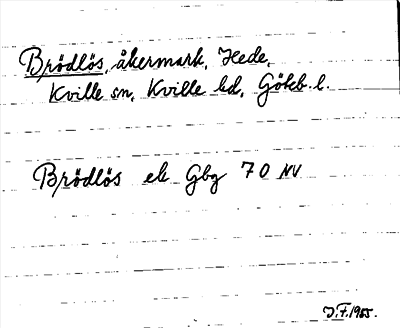 Brödlös, åkermark, Hede,
Kville sn, Kville hd, Göteb. l.
Brödlös ek Gbg 70 NV
J.F. 1955.